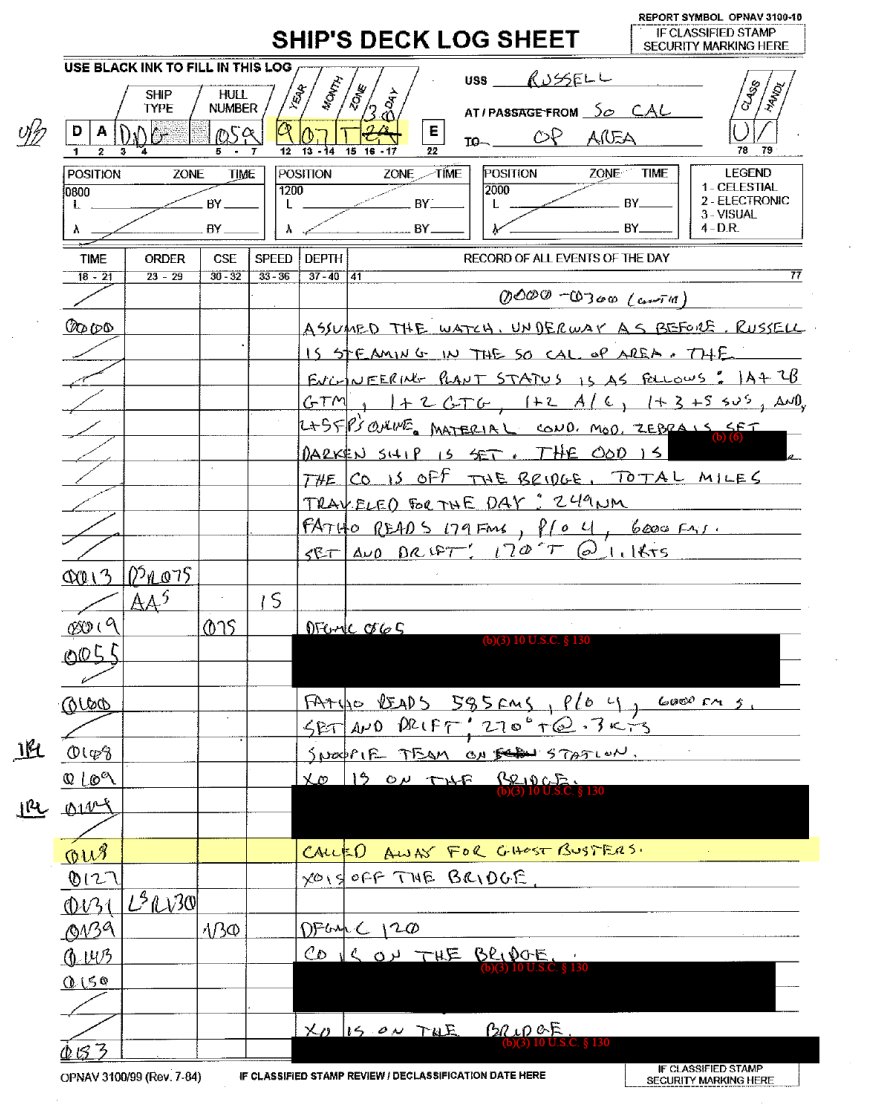 REPORT SYMBOL OPNAV 3100-10
SHIP'S DECK LOG SHEET
IF CLASSIFIED STAMP
SECURITY MARKING HERE
USE BLACK INK TO FILL IN THIS LOG
SHIP TYPE HULL NUMBER YEAR MONTH ZONE DAY
USS RUSSELL
AT / PASSAGE FROM SO CAL
TO OP AREA
CLASS HANDL
D A DDG 059 9 07 T 30 E U
1 2 3 4 5 - 7 12 13 - 14 15 16 - 17 22 78 79
POSITION ZONE TIME POSITION ZONE TIME POSITION ZONE TIME LEGEND
0800 1200 2000 1 - CELESTIAL
L BY L BY L BY 2 - ELECTRONIC
3 - VISUAL
λ BY λ BY λ BY 4 - D.R.
TIME ORDER CSE SPEED DEPTH RECORD OF ALL EVENTS OF THE DAY
18 - 21 23 - 29 30 - 32 33 - 36 37 - 40 41 77
0000-0300
0000 ASSUMED THE WATCH. UNDERWAY AS BEFORE. RUSSELL
IS STEAMING IN THE SO CAL OP AREA. THE
ENGINEERING PLANT STATUS IS AS FOLLOWS: 1A+2B
GTM, 1+2 GTG, 1+2 A/C, 1+3+5 SWS, AND,
FP'S ONLINE. MATERIAL COND. MOD. ZEBRA IS SET
(b) (6)
DARKEN SHIP IS SET. THE OOD IS
THE CO IS OFF THE BRIDGE. TOTAL MILES
TRAVELED FOR THE DAY: 249NM
FATHO READS 179 FMS, P/O 4, 6000 FMS.
SET AND DRIFT: 170°T @ 1.1KTS
0013 075
15
0019 075 065
(b)(3) 10 U.S.C. § 130
0055
0100 FATHO READS 585 FMS, P/O 4, 6000 FMS.
SET AND DRIFT: 270°T @ .3KTS
0108 SNOOPIE TEAM ON STATION.
0109 XO IS ON THE BRIDGE.
(b)(3) 10 U.S.C. § 130
0118 CALLED AWAY FOR GHOSTBUSTERS.
0127 XO IS OFF THE BRIDGE.
0131
0139 130 120
0143 CO IS ON THE BRIDGE.
(b)(3) 10 U.S.C. § 130
0150
XO IS ON THE BRIDGE.
(b)(3) 10 U.S.C. § 130
0153
OPNAV 3100/99 (Rev. 7-84) IF CLASSIFIED STAMP REVIEW / DECLASSIFICATION DATE HERE
IF CLASSIFIED STAMP
SECURITY MARKING HERE